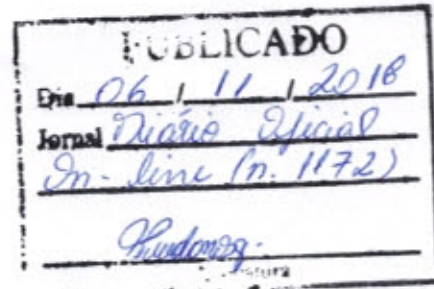 PUBLICADO
Dia 06 / 11 / 2018
Jornal Diário Oficial
On-line (n. 1172)